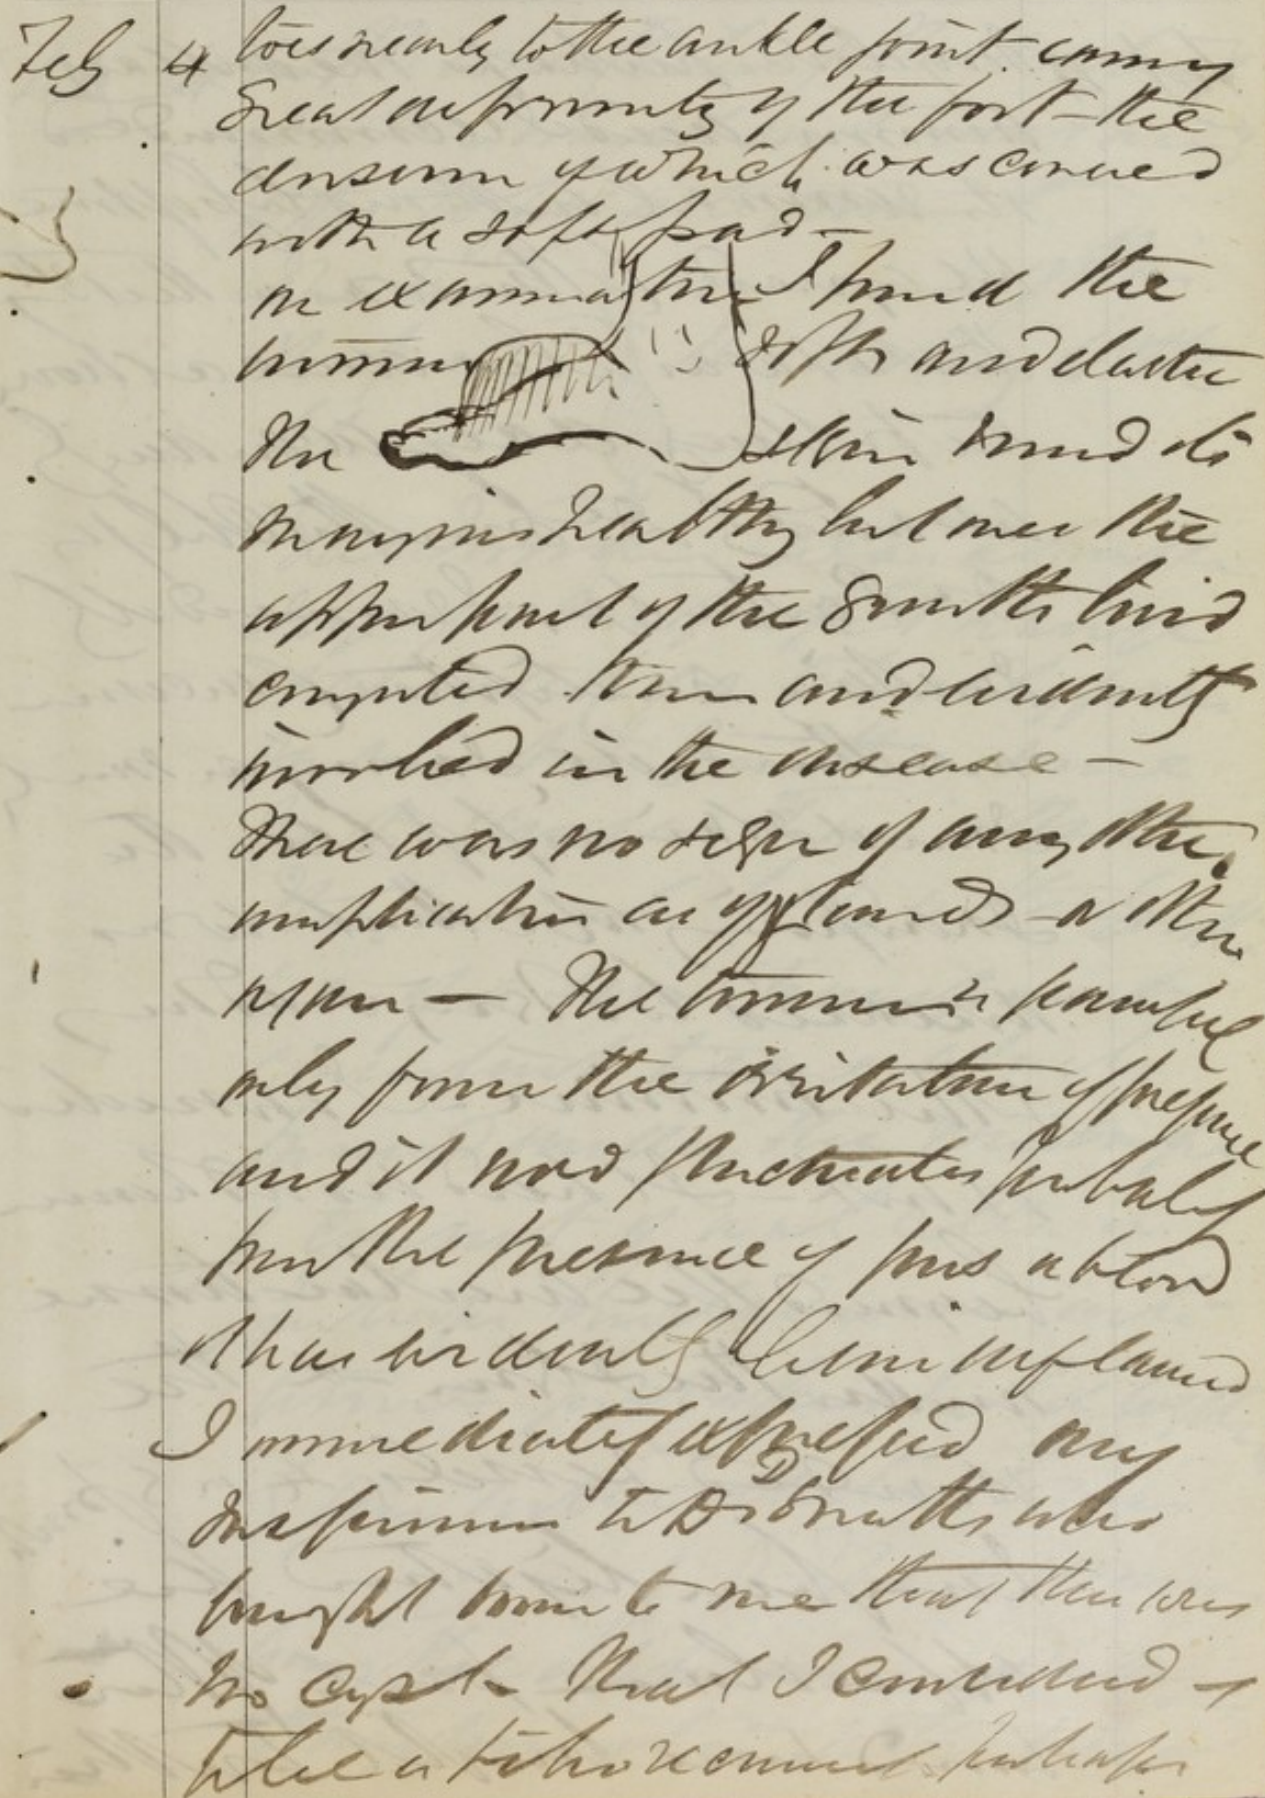 Feb 4 toes nearly to the ankle joint causing
great deformity of the foot - the
dorsum of which was covered
with a soft pad -
on examination I found the
tumour soft and elastic
the skin round its
margins healthy but over the
upper part of the growth livid
congested thin and evidently
involved in the disease -
There was no sign of any other
implication as of glands or other
organ - The tumour is painful
only from the irritation of pressure
and it now fluctuates probably
from the presence of pus or blood
it has evidently been inflamed
I immediately expressed my
to Dr who
brought him to me that there was
no cyst - that I considered it
to be a fibro recurrent perhaps